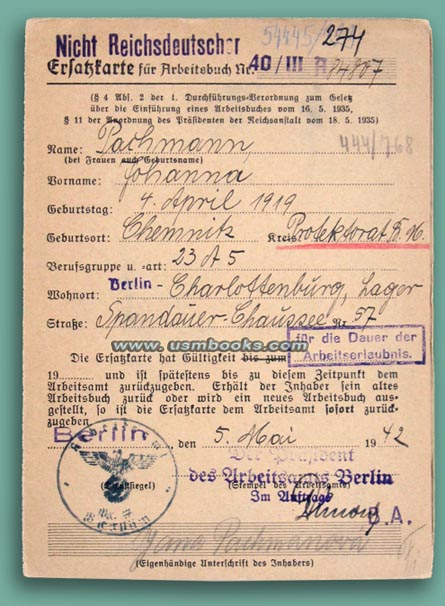 Nicht Reichsdeutscher
54445/
274
Ersatzkarte für Arbeitsbuch Nr. 40/III A 84807
(§ 4 Abs. 2 der 1. Durchführungs-Verordnung zum Gesetz
über die Einführung eines Arbeitsbuches vom 16. 5. 1935,
§ 11 der Anordnung des Präsidenten der Reichsanstalt vom 18. 5. 1935)
444/768
Name: Pachmann
(bei Frauen auch Geburtsname)
Vorname: Johanna
Geburtstag: 4 April 1919
Geburtsort: Chemnitz Kreis Protektorat
Berufsgruppe u. -art: 23 A 5
Wohnort: Berlin-Charlottenburg, Lager
Straße: Spandauer-Chaussee Nr. 57
www.usmbooks.com
für die Dauer der
Arbeitserlaubnis.
Die Ersatzkarte hat Gültigkeit bis zum
19 und ist spätestens bis zu diesem Zeitpunkt dem
Arbeitsamt zurückzugeben. Erhält der Inhaber sein altes
Arbeitsbuch zurück oder wird ein neues Arbeitsbuch aus-
gestellt, so ist die Ersatzkarte dem Arbeitsamt sofort zurück-
zugeben.
Berlin, den 5. Mai 1942
Der Präsident
des Arbeitsamts Berlin
(Stempel des Arbeitsamts)
Im Auftrage
B.A.
Jana Pachmanova
(Eigenhändige Unterschrift des Inhabers)